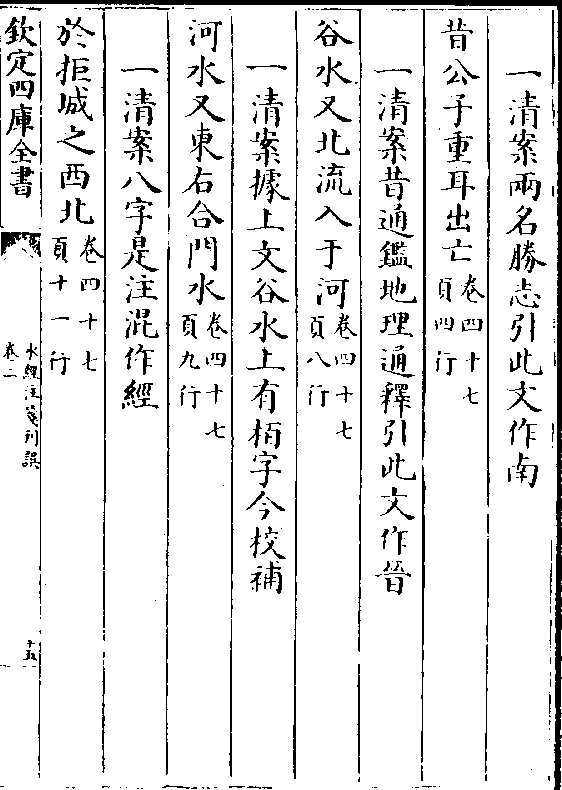 一清案兩名勝志引此文作南
昔公子重耳出亡卷四十七頁四行
一清案昔通鑑地理通釋引此文作晉
谷水又北流入于河卷四十七頁八行
一清案據上文谷水上有栢字今校補
河水又東右合門水卷四十七頁九行
一清案八字是注混作經
於拒城之西北卷四十七頁十一行
欽定四庫全書
水經注箋刊誤
卷二
十五